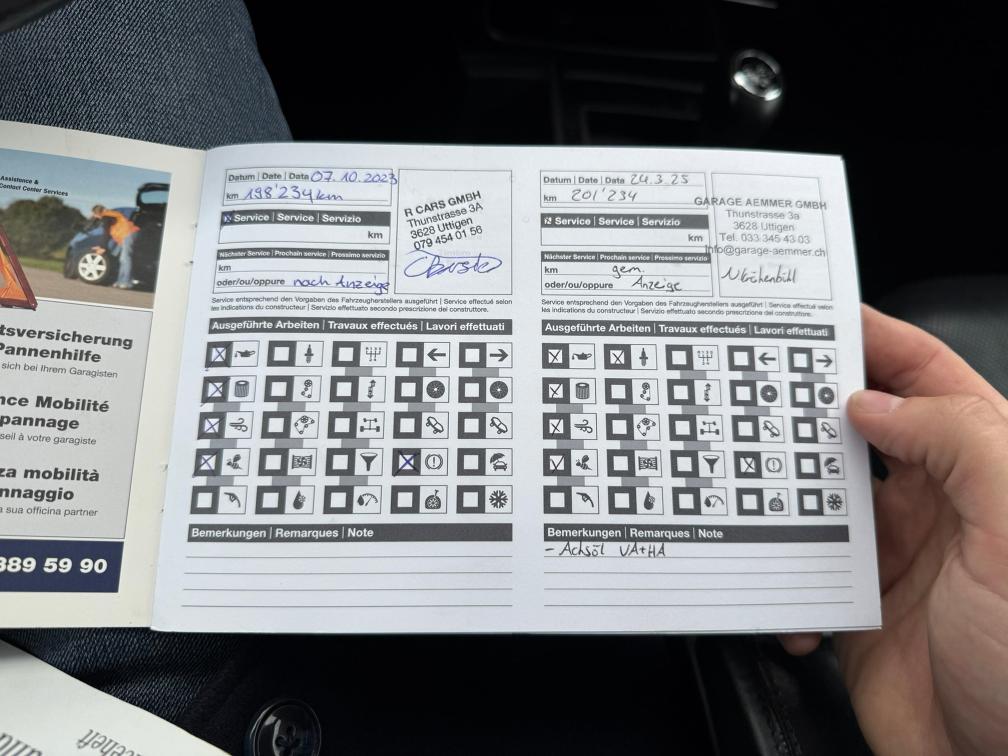 Assistance &
Contact Center Services
tsversicherung
Pannenhilfe
sich bei Ihrem Garagisten
nce Mobilité
pannage
seil à votre garagiste
za mobilità
nnaggio
a sua officina partner
889 59 90
Datum | Date | Data 07.10.2023
km 198'234km
Service | Service | Servizio
km
Nächster Service | Prochain service | Prossimo servizio
km
oder/ou/oppure nach Anzeige
R CARS GMBH
Thunstrasse 3A
3628 Uttigen
079 454 01 56
Service entsprechend den Vorgaben des Fahrzeugherstellers ausgeführt | Service effectué selon
les indications du constructeur | Servizio effettuato secondo prescrizione del construttore.
Ausgeführte Arbeiten | Travaux effectués | Lavori effettuati
Bemerkungen | Remarques | Note
Datum | Date | Data 24.3.25
km 201'234
Service | Service | Servizio
km
Nächster Service | Prochain service | Prossimo servizio
km gem.
oder/ou/oppure Anzeige
GARAGE AEMMER GMBH
Thunstrasse 3a
3628 Uttigen
Tel. 033 345 43 03
info@garage-aemmer.ch
Service entsprechend den Vorgaben des Fahrzeugherstellers ausgeführt | Service effectué selon
les indications du constructeur | Servizio effettuato secondo prescrizione del construttore.
Ausgeführte Arbeiten | Travaux effectués | Lavori effettuati
Bemerkungen | Remarques | Note
- Achsöl VA+HA